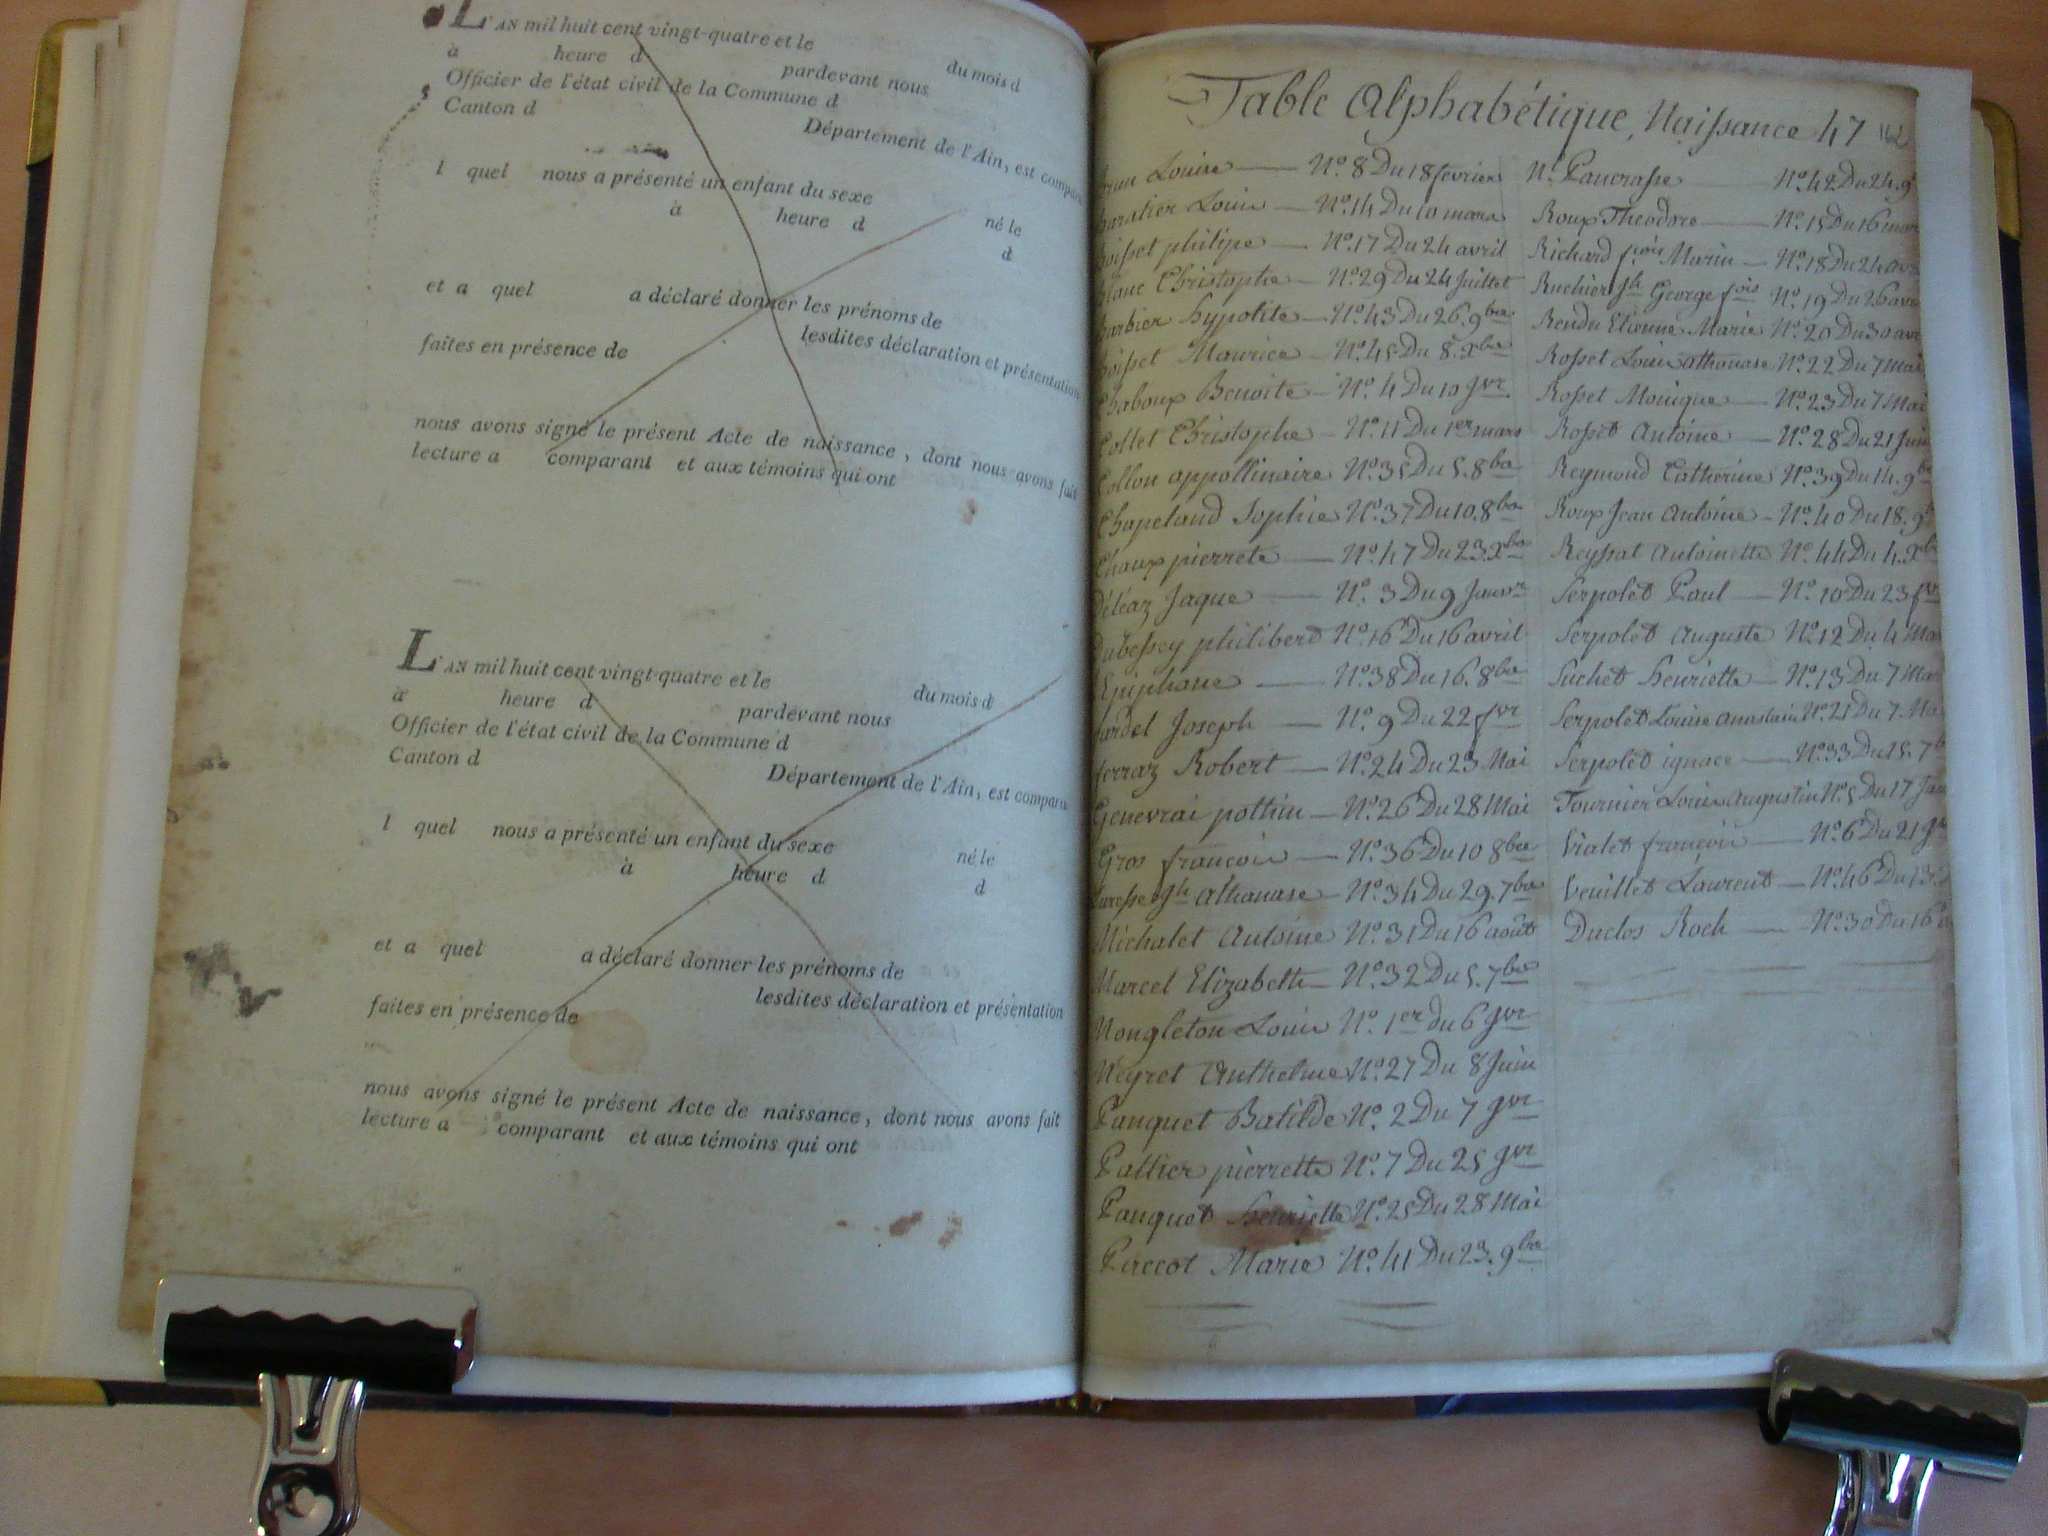 L'AN mil huit cent vingt-quatre et le du mois d
à heure d pardevant nous
Officier de l'état civil de la Commune d
Canton d Département de l'Ain, est compara
l quel nous a présenté un enfant du sexe né le
à heure d d
et a quel a déclaré donner les prénoms de
lesdites déclaration et présentation
faites en présence de
nous avons signé le présent Acte de naissance, dont nous avons fait
lecture a comparant et aux témoins qui ont
L'AN mil huit cent vingt-quatre et le du mois d
à heure d pardevant nous
Officier de l'état civil de la Commune d
Canton d Département de l'Ain, est compara
l quel nous a présenté un enfant du sexe né le
à heure d d
et a quel a déclaré donner les prénoms de
lesdites déclaration et présentation
faites en présence de
nous avons signé le présent Acte de naissance, dont nous avons fait
lecture a comparant et aux témoins qui ont
Table Alphabétique, Naissance 47
Louise N.º 8 Du 18 fevrier
Louis N.º 14 Du 10 mars
philipe N.º 17 Du 24 avril
Christophe N.º 29 Du 24 Juillet
Barbier hypolite N.º 43 Du 26. 9bre
Maurice N.º 45 Du 8. Xbre
Chaboux Benoite N.º 4 Du 10 jvr
Collet Christophe N.º 11 Du 1er mars
Collon appollinaire N.º 35 Du 5. 8bre
Chapeland Sophie N.º 37 Du 10. 8bre
Chaux pierrete N.º 47 Du 23. Xbre
Déléaz Jaque N.º 3 Du 9 Janvr
Dubessey philibert N.º 16 Du 16 avril
Epiphane N.º 38 Du 16. 8bre
Joseph N.º 9 Du 22 fvr
ferraz Robert N.º 24 Du 23 Mai
Genevrai pothin N.º 26 Du 28 Mai
Gros françois N.º 36 Du 10 8bre
Jh athanase N.º 34 Du 29. 7bre
Michalet Antoine N.º 31 Du 16 août
Marcel Elizabette N.º 32 Du 5. 7bre
Mongleton Louis N.º 1er du 6 jvr
Neyret Anthelme N.º 27 Du 8 Juin
Panquet Batilde N.º 2 Du 7 jvr
Pallier pierrette N.º 7 Du 25 jvr
Panquet henriette N.º 25 Du 28 Mai
Paccot Marie N.º 41 Du 23. 9bre
N. Pancrasse N.º 42 Du 24. 9
Roux Théodore N.º 15 Du 16 mar
Richard fçois Marin N.º 18 Du 24 avr
Ruchier Jh George fçois N.º 19 Du 26 avr
Rendu Etienne Marie N.º 20 Du 30 avr
Rosset Louis athanase N.º 22 Du 7 Mai
Rosset Monique N.º 23 Du 7 Mai
Rosset Antoine N.º 28 Du 21 Juin
Reymond Catherine N.º 39 Du 14. 9b
Roux Jean Antoine N.º 40 Du 18. 9b
Reyssat Antoinette N.º 44 Du 4. Xb
Serpolet Paul N.º 10 Du 23 fvr
Serpolet Auguste N.º 12 Du 4 Ma
Suchet henriette N.º 13 Du 7 Mar
Serpolet Louise anastasie N.º 21 Du 7. Ma
Serpolet ignace N.º 33 Du 15. 7b
Tournier Louis Augustin N.º 5 Du 17 Jan
Vialet françois N.º 6 Du 21 j
Veuillet Laurent N.º 46 Du 13.
Duclos Roch N.º 30 Du 16 a